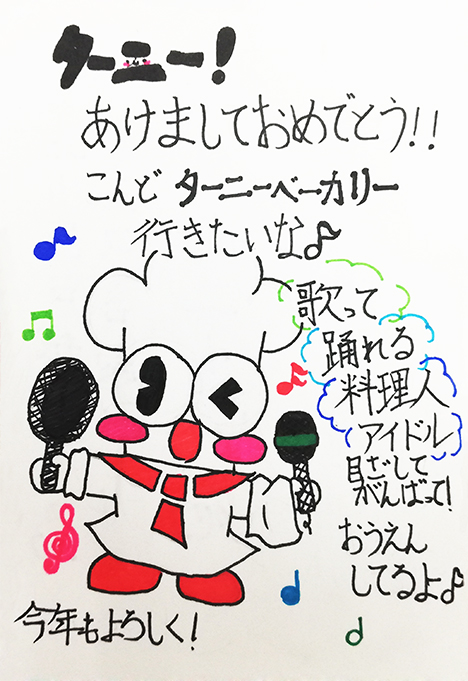 ターニー!
あけましておめでとう!!
こんど ターニーベーカリー
行きたいな♪
歌って
踊れる
料理人
アイドル
目ざして
がんばって!
おうえん
してるよ♪
今年もよろしく!